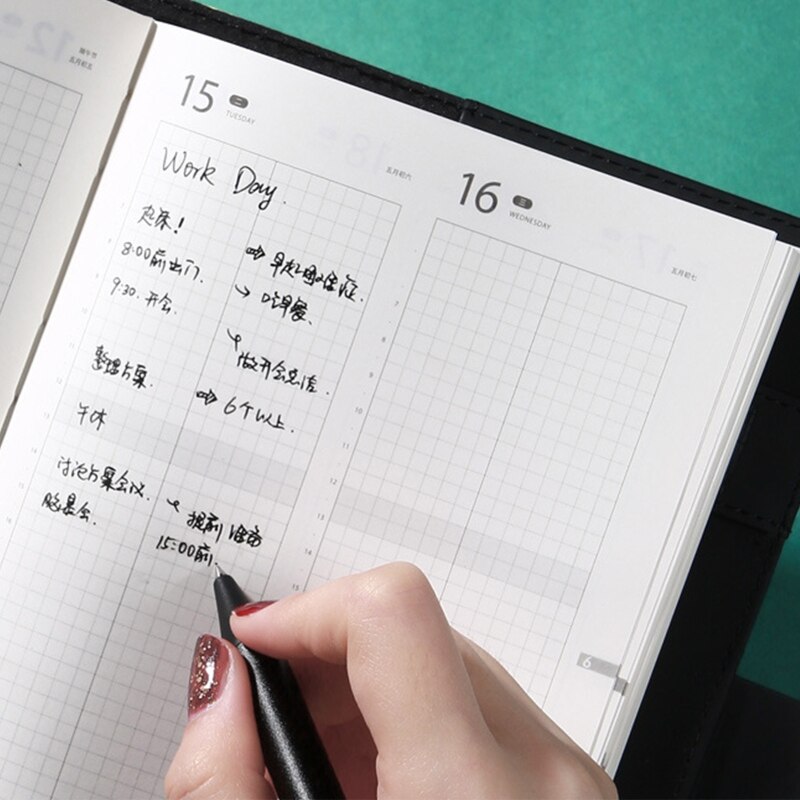 端午节
五月初五
15 二
TUESDAY
五月初六
Work Day.
起床!
8:00前出门.
9:30. 开会.
整理方案.
午休
讨论方案会议.
脑暴会.
吃早餐.
做开会总结.
6个以上.
提前准备
15:00前.
16 三
WEDNESDAY
五月初七
6